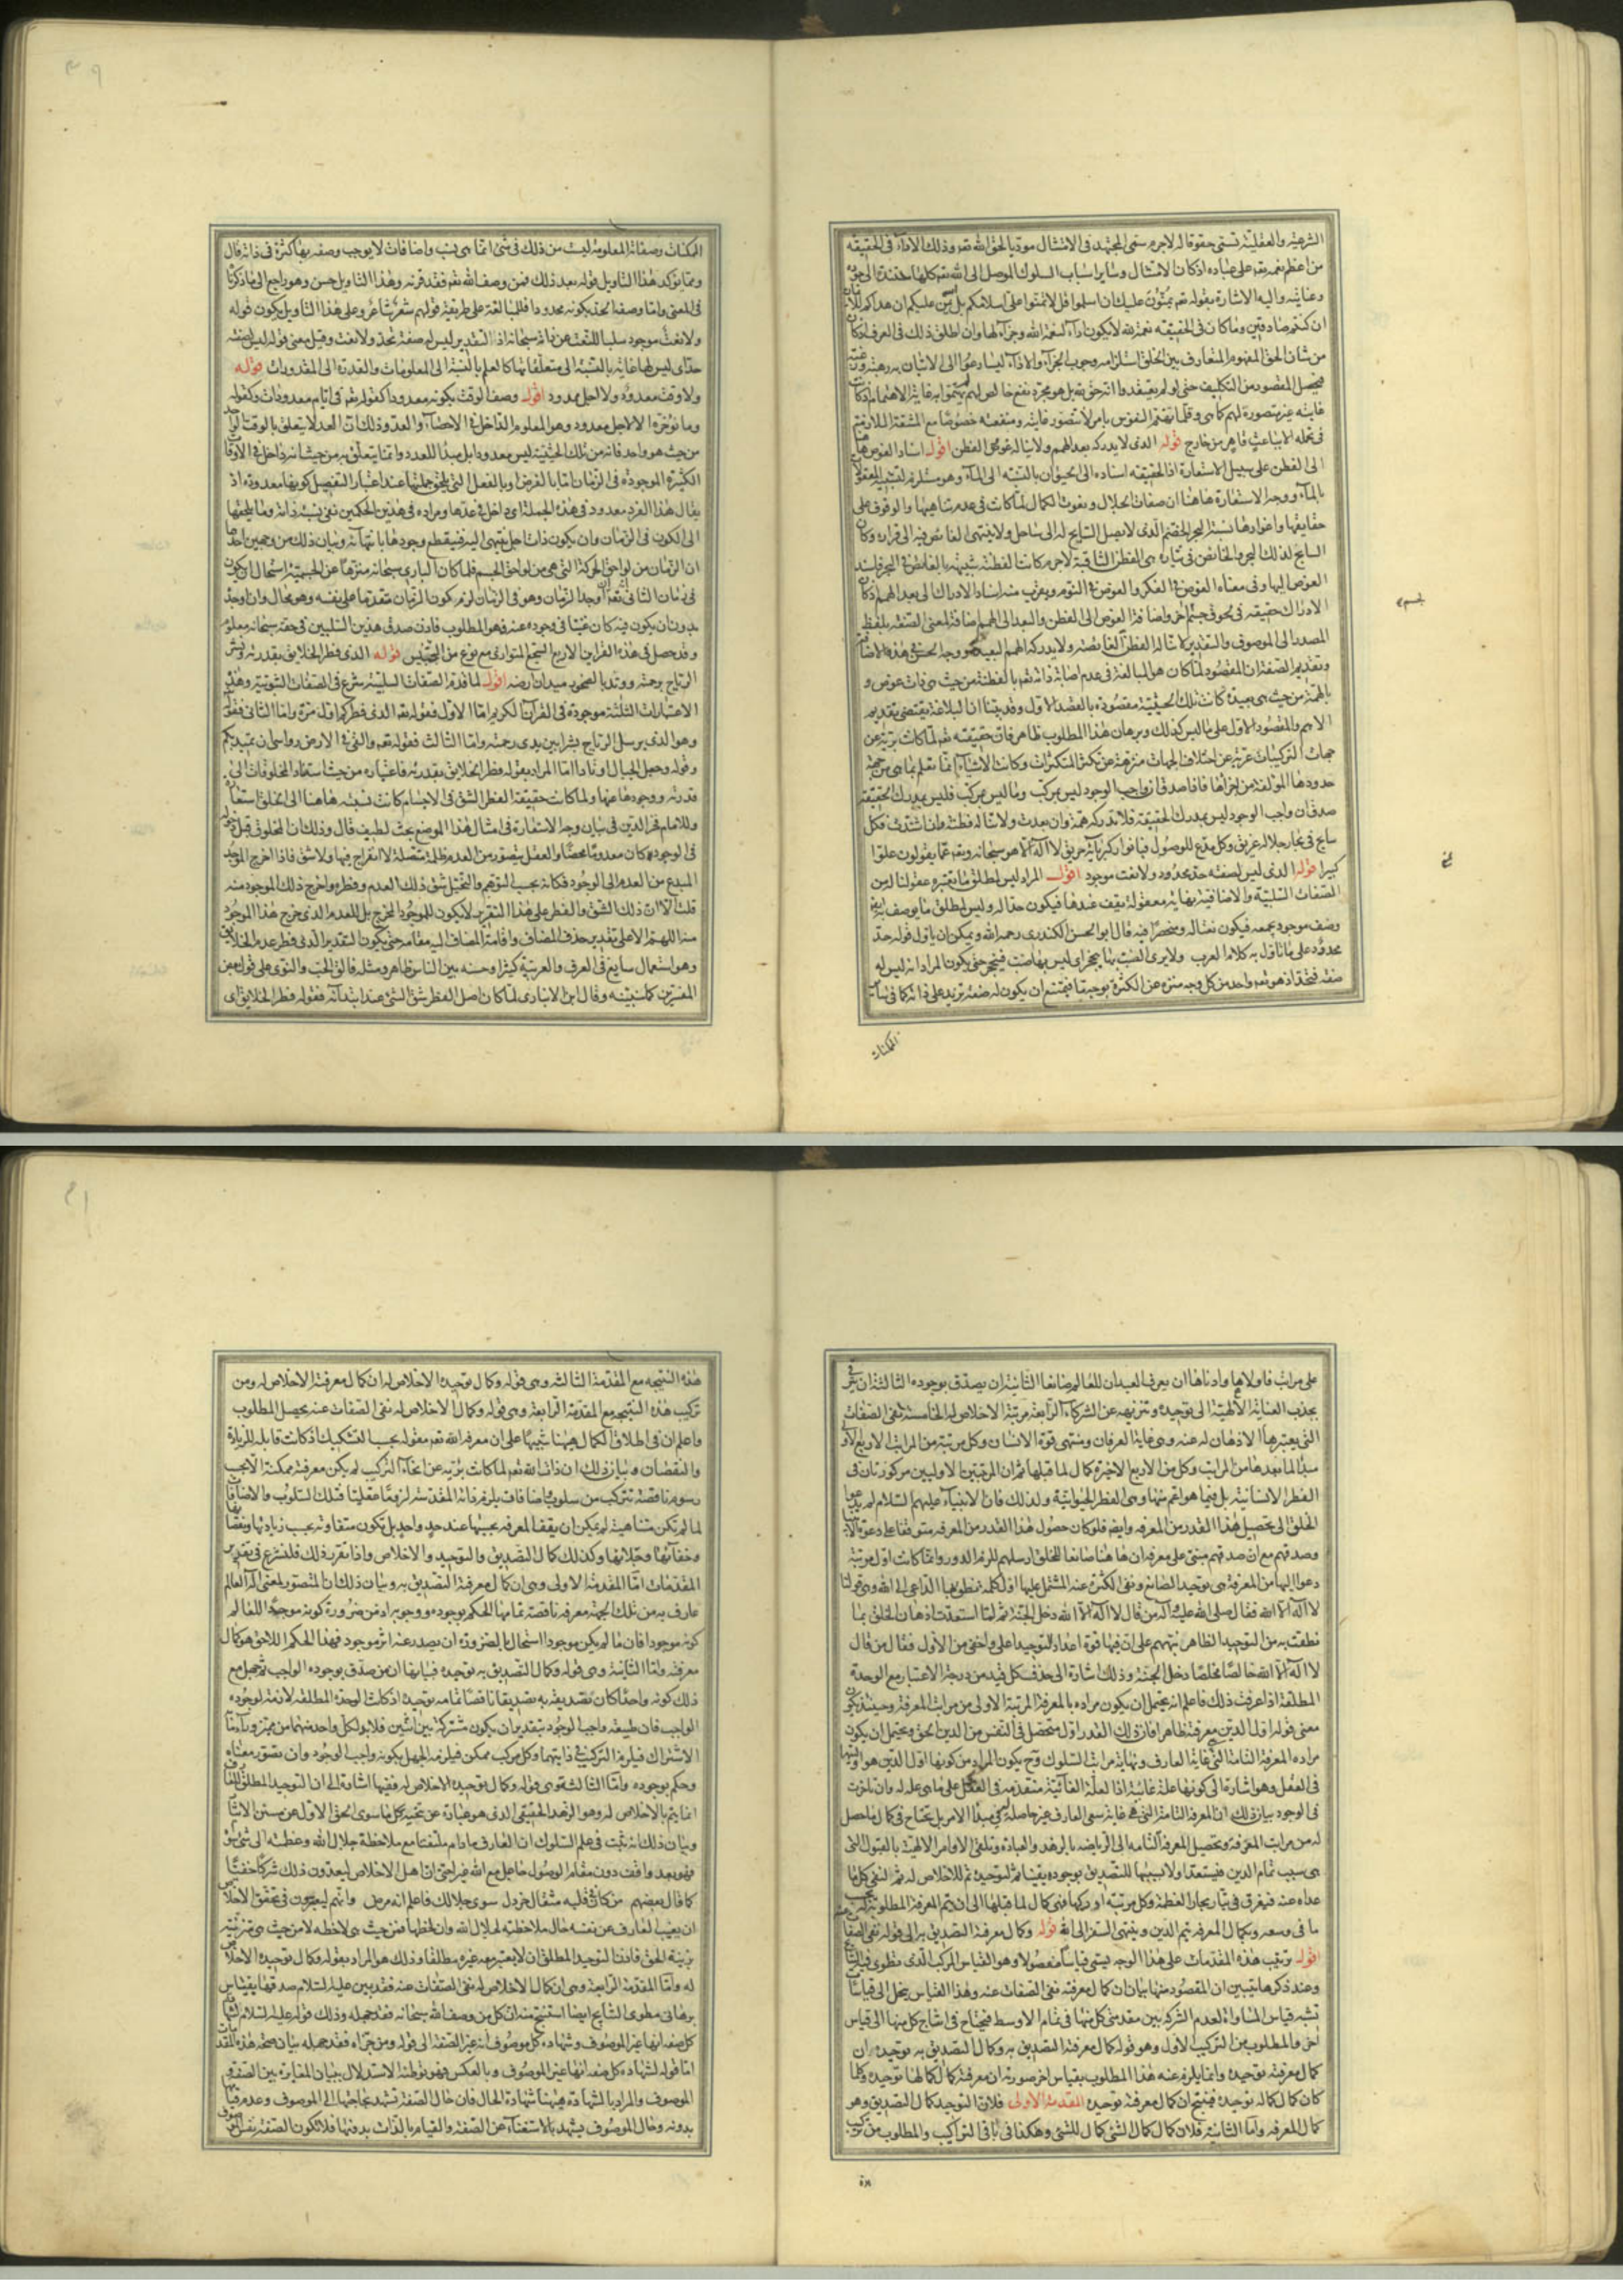 الشرعية والعقلية تسمى حقوقا له لاجرم سمى المجتهد فى الامتثال موديا لحق الله تعم وذلك الاداء فى الحقيقة
من اعظم نعمه تعم على عباده اذ كان الامتثال وساير اسباب السلوك الموصل الى الله تعم كلها مستندة الى جوده
وعنايته واليه الاشارة بقوله تعم يمنون عليك ان اسلموا قل لا تمنوا على اسلامكم بل الله يمن عليكم ان هداكم للايمان
ان كنتم صادقين وما كان فى الحقيقة نعمة لله لا يكون اداء لنعمة الله وجزاء لها وان اطلق ذلك فى العرف اذ كان
من شان الحق المفهوم المتعارف بين الخلق استلزامه وجوب الجزاء والاداء ليسارعوا الى الاتيان به رهبة ورغبة
فيحصل المقصود من التكليف حتى لو لم يعتقدوا انه حق لله بل هو مجرد نفع خالص لهم لم يهتموا به غاية الاهتمام اذ كانت
غايته غير متصورة لهم كما هى وقلما تهتم النفوس بامر لا تتصور غايته ومنفعته خصوصا مع المشقة اللازمة
فى تحمله الا بباعث قاهر من خارج قوله الذى لا يدركه بعد الهمم ولا يناله غوص الفطن اقول اسناد الغوص هاهنا
الى الفطن على سبيل الاستعارة اذ الحقيقة اسناده الى الحيوان بالنسبة الى الماء وهو مستلزم لتشبيه المعقولات
بالماء ووجه الاستعارة هاهنا ان صفات الجلال ونعوت الكمال لما كانت فى عدم تناهيها والوقوف على
حقايقها واغوارها تشبه البحر الخضم الذى لا يصل السايح له الى ساحل ولا ينتهى الغائص فيه الى قرار وكان
السابح لذلك البحر والخائض فى تياره هى الفطن الثاقبة لاجرم كانت الفطنة شبيهة بالغائص فى البحر فاسند
الغوص اليها وفى معناه الغوص فى الفكر والغوص فى النوم ويقرب منه اسناد الادراك الى بعد الهمم اذ كان
الادراك حقيقة فى لحوق جسم لجسم اخر واضافة الغوص الى الفطن والبعد الى الهمم اضافة لمعنى الصفة بلفظ
المصدر الى الموصوف والتقدير لا تناله الفطن الغائصة ولا يدركه الهمم البعيدة ووجه الحسن فى هذه الاضافة
وتقديم الصفة ان المقصود لما كان هو المبالغة فى عدم اصابة ذاته تعم بالفطنة من حيث هى ذات غوص و
بالهمة من حيث هى بعيدة كانت تلك الحيثية مقصودة بالقصد الاول وقد بينا ان البلاغة يقتضى تقديم
الاهم والمقصود الاول على ما ليس كذلك وبرهان هذا المطلوب ظاهر فان حقيقته تعم لما كانت برية عن
جهات التركيبات عرية عن اختلاف الجهات منزهة عن تكثر المتكثرات وكانت الاشياء انما تعلم بما هى من جهة
حدودها المؤلفة من اجزائها فاذا صدق ان واجب الوجود ليس بمركب وما ليس بمركب فليس بمدرك الحقيقة
صدق ان واجب الوجود ليس بمدرك الحقيقة فلا تدركه همة وان بعدت ولا تناله فطنة وان اشتدت فكل
سابح فى بحار جلاله غريق وكل مدع للوصول فبانوار كبريائه حريق لا اله الا هو سبحانه وتعم عما يقولون علوا
كبيرا قوله الذى ليس لصفته حد محدود ولا نعت موجود اقول المراد ليس لمطلق ما تعتبره عقولنا له من
الصفات السلبية والاضافية نهاية معقولة تقف عندها فيكون حدا له وليس لمطلق ما يوصف به ايضا
وصف موجود يجمعه فيكون نعتا له ومنحصرا فيه قال ابو الحسن الكندرى رحمه الله ويمكن ان ياول قوله حد
محدود على ما تاول به كلام العرب ولا يرى الضب بها ينجحر اى ليس بها ضب فينجحر حتى يكون المراد انه ليس له
صفة فتحد اذ هو تعم واحد من كل وجه منزه عن الكثرة بوجه ما فيمتنع ان يكون له صفة تزيد على ذاته كما فى ساير
الممكنات
الممكنات وصفاته المعلومة ليست من ذلك فى شئ انما هى نسب واضافات لا يوجب وصفه بها كثرة فى ذاته قال
ومما يوكد هذا التاويل قوله بعد ذلك فمن وصف الله تعم فقد قرنه وهذا التاويل حسن وهو راجع الى ما ذكرنا
فى المعنى واما وصفه الحد بكونه محدودا فللمبالغة على طريقة قولهم شعر شاعر وعلى هذا التاويل يكون قوله
ولا نعت موجود سلبا للنعت عن ذاته سبحانه اذ التقدير ليس له صفة تحد ولا نعت وقيل معنى قوله ليس لصفته
حد اى ليس لها غاية بالنسبة الى متعلقاتها كالعلم بالنسبة الى المعلومات والقدرة الى المقدورات قوله
ولا وقت معدود ولا اجل ممدود اقول وصف الوقت بكونه معدودا كقوله تعم فى ايام معدودات وكقوله
وما نؤخره الا لاجل معدود وهو المعلوم الداخل فى الاحصاء والعد وذلك ان العد لا يتعلق بالوقت الواحد
من حيث هو واحد فانه من تلك الحيثية ليس معدودا بل مبدا للعدد وانما يتعلق به من حيث انه داخل فى الاوقات
الكثيرة الموجودة فى الزمان اما بالفرض او بالفعل التى يلحق جملتها عند اعتبار التفصيل كونها معدودة اذ
يقال هذا الفرد معدود فى هذه الجملة اى داخل فى عدها ومراده فى هذين الحكمين نفى نسبة ذاته وما يلحقها
الى الكون فى الزمان وان يكون ذات اجل ينتهى اليه فينقطع وجودها بانتهائه وبيان ذلك من وجهين احدهما
ان الزمان من لواحق الحركة التى هى من لواحق الجسم فلما كان البارى سبحانه منزها عن الجسمية استحال ان يكون
فى زمان الثانى انه تعم ان اوجد الزمان وهو فى الزمان لزم كون الزمان متقدما على نفسه وهو محال وان اوجده
بدون ان يكون فيه كان غنيا فى وجوده عنه فهو المطلوب فاذن صدق هذين السلبين فى حقه سبحانه معلوم
وقد حصل فى هذه القراين الاربع السجع المتوازى مع نوع من التجنيس قوله الذى فطر الخلايق بقدرته ونشر
الرياح برحمته ووتد بالصخور ميدان ارضه اقول لما قدم الصفات السلبية شرع فى الصفات الثبوتية وهذه
الاعتبارات الثلثة موجودة فى القرآن الكريم اما الاول فقوله تعم الذى فطركم اول مرة واما الثانى فقوله
وهو الذى يرسل الرياح بشرا بين يدى رحمته واما الثالث فقوله تعم والقى فى الارض رواسى ان تميد بكم
وقوله وجعل الجبال اوتادا اما المراد بقوله فطر الخلايق بقدرته فاعتباره من حيث استناد المخلوقات الى
قدرته ووجودها عنها ولما كانت حقيقة الفطر الشق فى الاجسام كانت نسبته هاهنا الى الخلق استعارة
وللامام فخر الدين فى بيان وجه الاستعارة فى امثال هذا الموضع بحث لطيف قال وذلك ان المخلوق قبل دخوله
فى الوجود كان معدوما محضا والعقل يتصور من العدم ظلمة متصلة لا انفراج فيها ولا شق فاذا اخرج الموجد
المبدع من العدم الى الوجود فكانه بحسب التوهم والتخيل شق ذلك العدم وفطره واخرج ذلك الموجود منه
قلت الا ان ذلك الشق والفطر على هذا التقرير لا يكون للموجود المخرج بل للعدم الذى خرج هذا الموجود
منه اللهم الا على تقدير حذف المضاف واقامة المضاف اليه مقامه حتى يكون التقدير الذى فطر عدم الخلايق
وهو استعمال سايغ فى العرف والعربية كثيرا وحسنه بين الناس ظاهر ومثله فالق الحب والنوى على قول بعض
المفسرين كما سنبينه وقال ابن الانبارى لما كان اصل الفطر شق الشئ عند ابتدائه فقوله فطر الخلايق اى
على مراتب فاولاها وادناها ان يعرف العبد ان للعالم صانعا الثانية ان يصدق بوجوده الثالثة ان يترقى
بجذب العناية الالهية الى توحيده وتنزيهه عن الشركاء الرابعة مرتبة الاخلاص له الخامسة نفى الصفات
التى يعتبرها الاذهان له عنه وهى غاية العرفان ومنتهى قوة الانسان وكل مرتبة من المراتب الاربع الاولى
مبدا لما بعدها من المراتب وكل من الاربع الاخيرة كمال لما قبلها ثم ان المرتبتين الاوليين مركوزتان فى
الفطرة الانسانية بل فيما هو اعم منها وهى الفطرة الحيوانية ولذلك فان الانبياء عليهم السلام لم يدعوا
الخلق الى تحصيل هذا القدر من المعرفة وايضا فلو كان حصول هذا القدر من المعرفة متوقفا على دعوة الانبياء
وصدقهم مع ان صدقهم مبنى على معرفة ان هاهنا صانعا للخلق ارسلهم للزم الدور وانما كانت اول مرتبة
دعوا اليها من المعرفة هى توحيد الصانع ونفى الكثرة عنه المشتمل عليها اول كلمة نطق بها الداعى الى الله وهى قولنا
لا اله الا الله فقال صلى الله عليه وآله من قال لا اله الا الله دخل الجنة ثم لما استعدت اذهان الخلق بما
نطقت به من التوحيد الظاهر نبههم على ان فيها قوة اعداد لتوحيد اعلى واخفى من الاول فقال من قال
لا اله الا الله خالصا مخلصا دخل الجنة وذلك اشارة الى حذف كل قيد من درجة الاعتبار مع الوحدة
المطلقة اذا عرفت ذلك فاعلم انه يحتمل ان يكون مراده بالمعرفة المرتبة الاولى من مراتب المعرفة وحينئذ يكون
معنى قوله اول الدين معرفته ظاهرا فان ذلك القدر اول متحصل فى النفس من الدين الحق ويحتمل ان يكون
مراده المعرفة التامة التى هى غاية العارف ونهاية مراتب السلوك وح يكون المراد من كونها اول الدين هو اوليتها
فى العقل وهو اشارة الى كونها علة غائية اذ العلة الغائية متقدمة فى العقل على ما هى علة له وان تاخرت
فى الوجود بيان ذلك ان المعرفة التامة التى هى غاية سعى العارف غير حاصلة فى مبدا الامر بل يحتاج فى كمال ما حصل
له من مراتب المعرفة وتحصيل المعرفة التامة الى الرياضة بالزهد والعبادة وتلقى الاوامر الالهية بالقبول التى
هى سبب تمام الدين فيستعد اولا بسببها للتصديق بوجوده يقينا ثم لتوحيده ثم للاخلاص له ثم لنفى كل ما
عداه عنه فيغرق فى تيار بحار العظمة وكل مرتبة ادركها فهى كمال لما قبلها الى ان يتم المعرفة المطلوبة له بحسب
ما فى وسعه وبكمال المعرفة يتم الدين وينتهى السفر الى الله قوله وكمال معرفته التصديق به الى قوله نفى الصفات
اقول ترتيب هذه المقدمات على هذا الوجه يسمى قياسا مفصولا وهو القياس المركب الذى مطوى فيه النتايج
وعند ذكرها يتبين ان المقصود منها بيان ان كمال معرفته نفى الصفات عنه وهذا القياس ينحل الى قياسات
تشبه قياس المساواة لعدم الشركة بين مقدمتى كل منها فى تمام الاوسط فيحتاج فى انتاج كل منها الى قياس
اخر والمطلوب من التركيب الاول وهو قوله كمال معرفته التصديق به وكمال التصديق به توحيده ان
كمال معرفته توحيده وانما يلزم عنه هذا المطلوب بقياس اخر صورته ان معرفته كمال كمالها توحيده وكلما
كان كمال كماله توحيده فينتج ان كمال معرفته توحيده المقدمة الاولى فلان التوحيد كمال التصديق وهو
كمال المعرفة واما الثانية فلان كمال كمال الشئ كمال للشئ وهكذا فى باقى التراكيب والمطلوب من تركيب
هذه
هذه النتيجة مع المقدمة الثالثة وهى قوله وكمال توحيده الاخلاص له ان كمال معرفته الاخلاص له ومن
تركيب هذه النتيجة مع المقدمة الرابعة وهى قوله وكمال الاخلاص له نفى الصفات عنه يحصل المطلوب
واعلم ان فى اطلاق الكمال هيهنا تنبيها على ان معرفة الله تعم مقولة بحسب التشكيك اذ كانت قابلة للزيادة
والنقصان وبيان ذلك ان ذات الله تعم لما كانت برية عن انحاء التركيب لم يكن معرفته ممكنة الا بحسب
رسوم ناقصة تتركب من سلوب واضافات يلزم ذاته المقدسة لزوما عقليا فتلك السلوب والاضافات
لما لم تكن متناهية لم يمكن ان يقف المعرفة بحسبها عند حد واحد بل تكون متفاوتة بحسب زيادتها ونقصانها
وخفائها وجلائها وكذلك كمال التصديق والتوحيد والاخلاص واذا تقرر ذلك فلنشرع فى تقرير
المقدمات اما المقدمة الاولى وهى ان كمال معرفته التصديق به وبيان ذلك ان المتصور لمعنى اله العالم
عارف به من تلك الجهة معرفة ناقصة تمامها الحكم بوجوده ووجوبه اذ من ضرورة كونه موجدا للعالم
كونه موجودا فان ما لم يكن موجودا استحال بالضرورة ان يصدر عنه اثر موجود فهذا الحكم اللاحق هو كمال
معرفته واما الثانية وهى قوله وكمال التصديق به توحيده فبيانها ان من صدق بوجود الواجب ثم جهل مع
ذلك كونه واحدا كان تصديقه به تصديقا ناقصا تمامه توحيده اذ كانت الوحدة المطلقة لازمة لوجود
الواجب فان طبيعة واجب الوجود بتقدير ان يكون مشتركة بين اثنين فلا بد لكل واحد منهما من مميز وراء ما به
الاشتراك فيلزم التركيب فى ذاتيهما وكل مركب ممكن فيلزم الجهل بكونه واجب الوجود وان تصور معناه
وحكم بوجوده واما الثالثة وهى قوله وكمال توحيده الاخلاص له ففيها اشارة الى ان التوحيد المطلق للعارف
انما يتم بالاخلاص له وهو الزهد الحقيقى الذى هو عبارة عن تنحية كل ما سوى الحق الاول عن سنن الايثار
وبيان ذلك انه ثبت فى علم السلوك ان العارف مادام ملتفتا مع ملاحظة جلال الله وعظمته الى شئ سواه
فهو بعد واقف دون مقام الوصول جاعل مع الله غيرا حتى ان اهل الاخلاص ليعدون ذلك شركا خفيا
كما قال بعضهم من كان فى قلبه مثقال خردل سوى جلالك فاعلم انه مرض وانهم ليعتبرون فى تحقق الاخلاص
ان يغيب العارف عن نفسه حال ملاحظته لجلال الله وان لحظها فمن حيث هى لاحظة لا من حيث هى متزينة
بزينة الحق فاذن التوحيد المطلق ان لا يعتبر معه غيره مطلقا وذلك هو المراد بقوله وكمال توحيده الاخلاص
له واما المقدمة الرابعة وهى ان كمال الاخلاص له نفى الصفات عنه فقد بين عليه السلام صدقها بقياس
برهانى مطوى النتايج ايضا استنتج منه ان كل من وصف الله سبحانه فقد جهله وذلك قوله عليه السلام لشهادة
كل صفة انها غير الموصوف وشهادة كل موصوف انه غير الصفة الى قوله ومن جزاه فقد جهله بيان صحة هذه المقدمات
اما قوله لشهادة كل صفة انها غير الموصوف وبالعكس فهو توطئة الاستدلال ببيان المغايرة بين الصفة و
الموصوف والمراد بالشهادة هيهنا شهادة الحال فان حال الصفة تشهد بحاجتها الى الموصوف وعدم قيامها
بدونه وحال الموصوف يشهد بالاستغناء عن الصفة والقيام بالذات بدونها فلا تكون الصفة نفس الموصوف